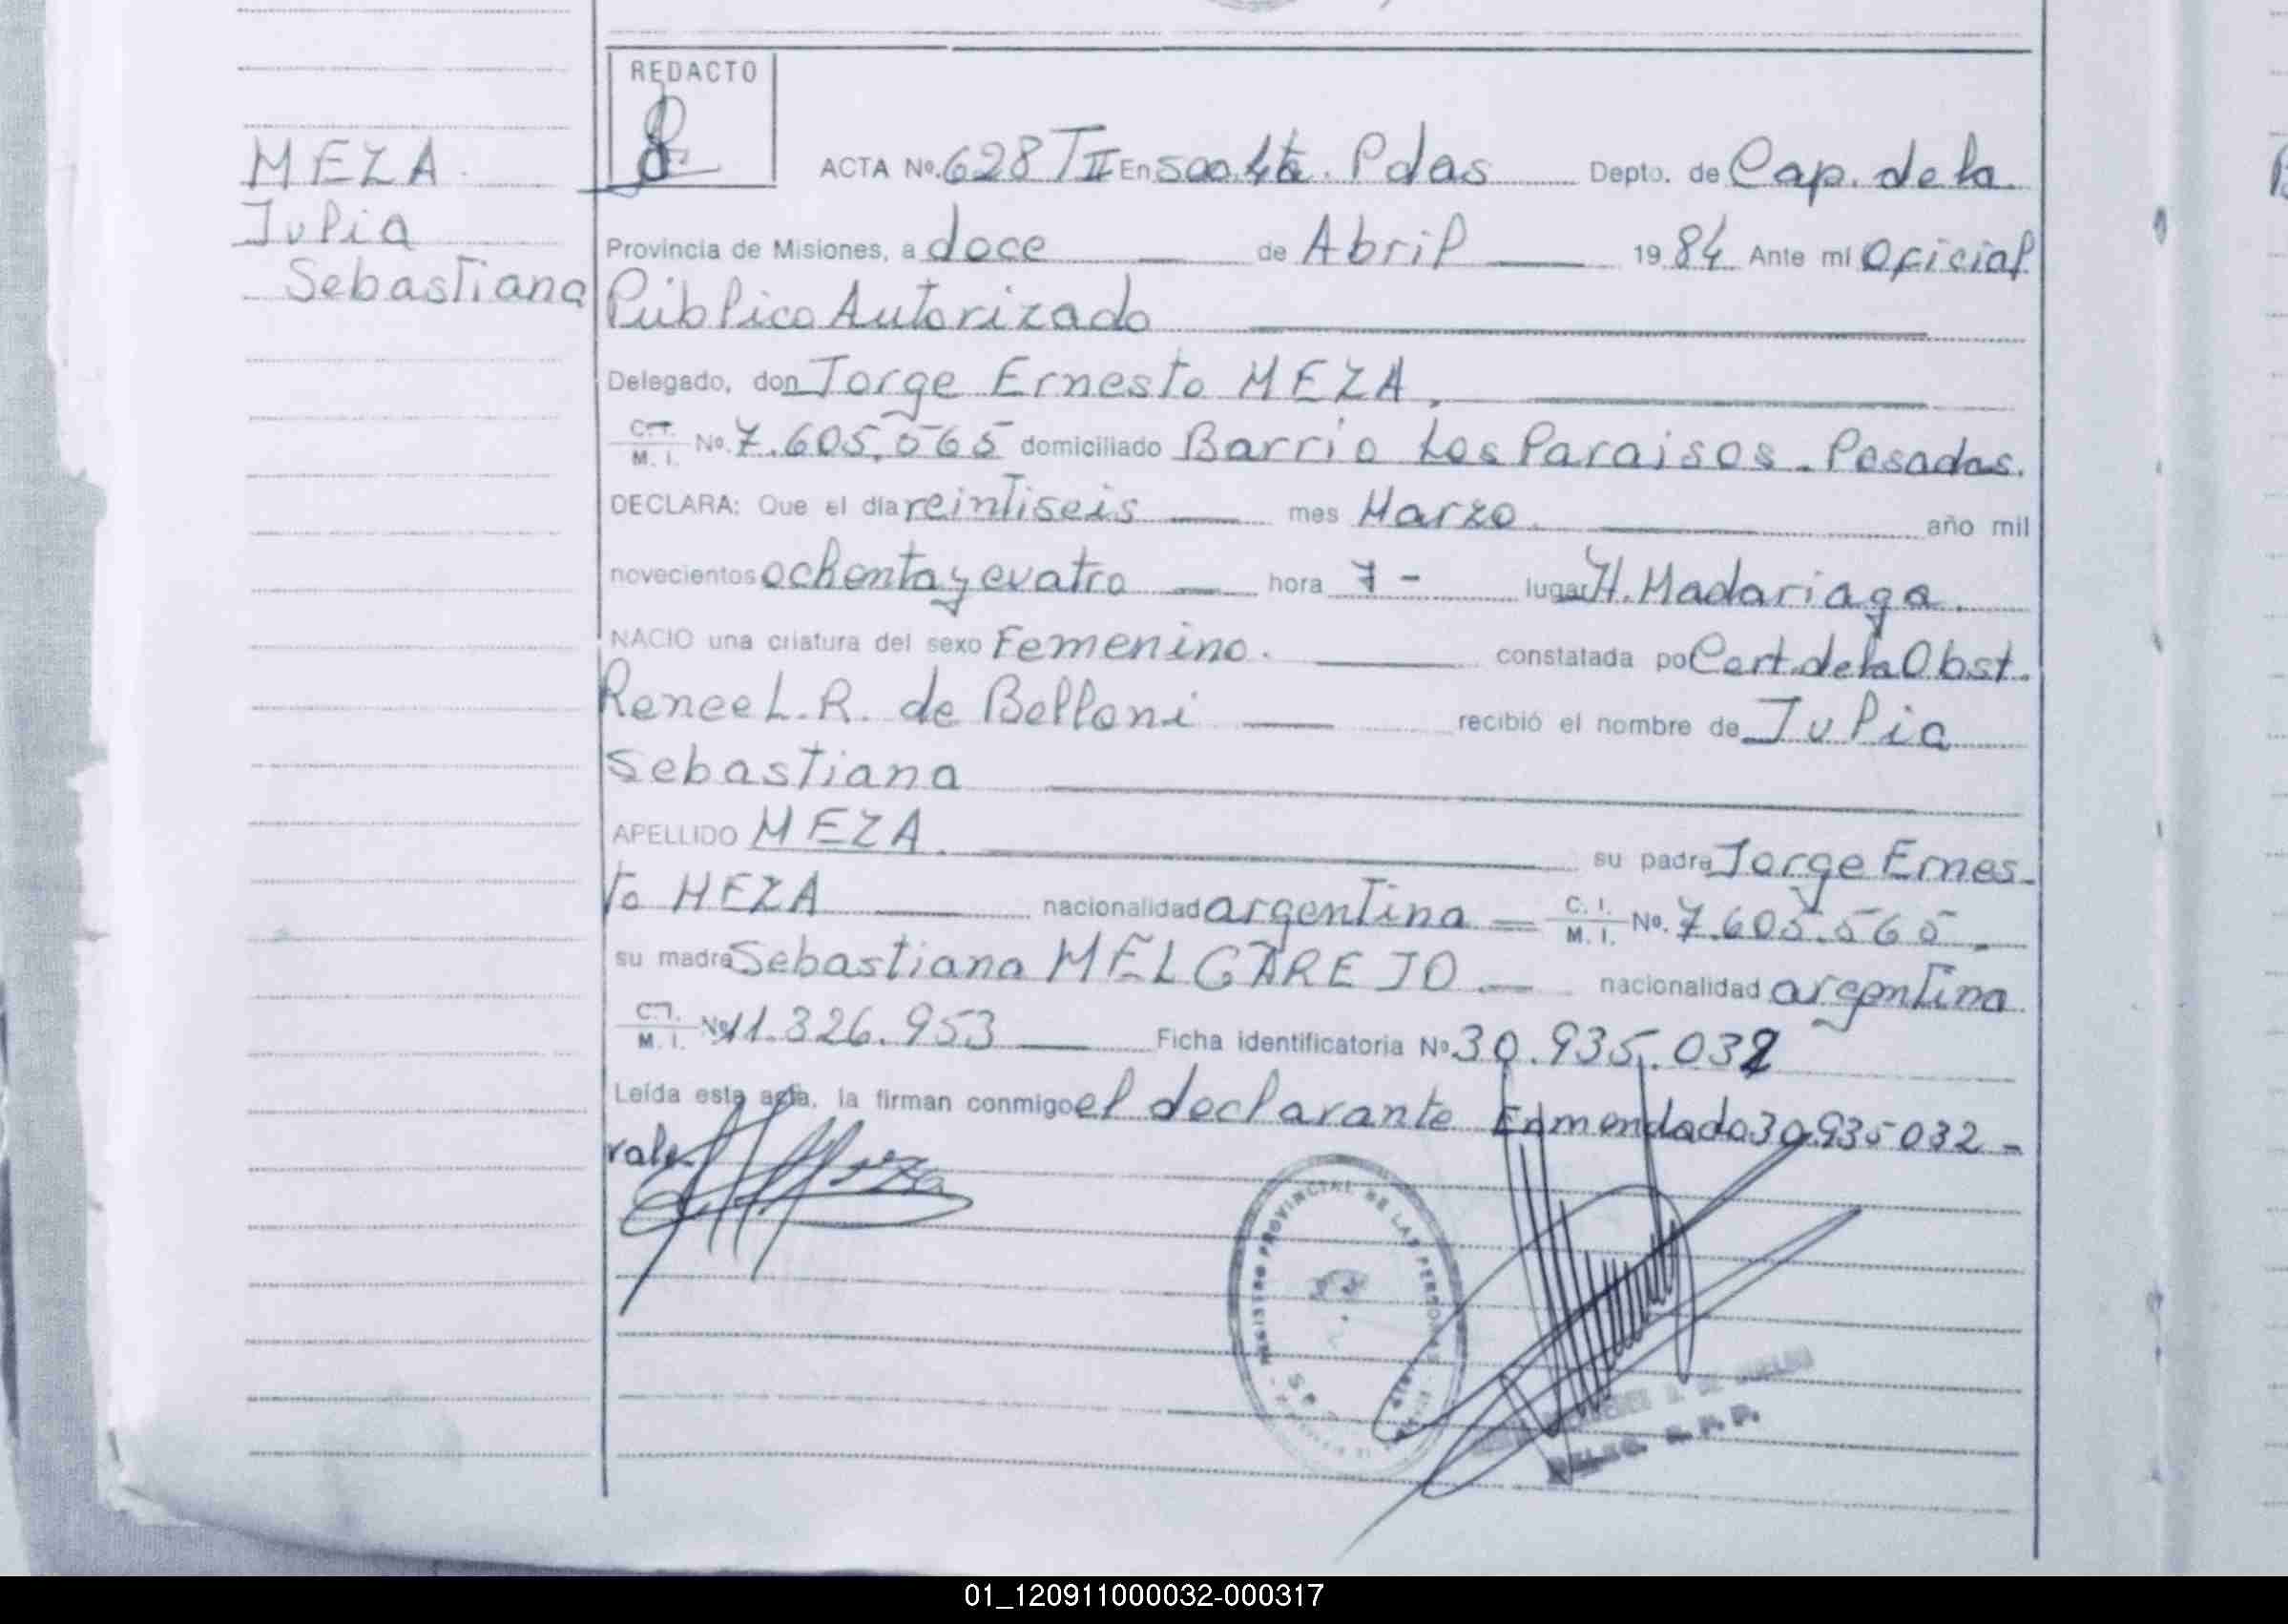 REDACTO
MEZA
Julia
Sebastiana
ACTA Nº 628 TII En Secc. 4ta. Pdas Depto. de Cap. de la
Provincia de Misiones, a doce de Abril 1984 Ante mi Oficial
Público Autorizado
Delegado, don Jorge Ernesto MEZA,
C.I. M.I. Nº. 7.605.565 domiciliado Barrio Los Paraisos - Posadas.
DECLARA: Que el día veintiseis mes Marzo. año mil
novecientos ochenta y cuatro hora 7 - lugar H. Madariaga.
NACIO una criatura del sexo Femenino. constatada por Cert. de la Obst.
Renee L. R. de Belloni recibió el nombre de Julia
Sebastiana
APELLIDO MEZA. su padre Jorge Ernes-
to MEZA nacionalidad argentina C. I. M. I. Nº. 7.605.565.
su madre Sebastiana MELGAREJO nacionalidad argentina
C.I. M.I. Nº 11.326.953 Ficha identificatoria Nº 30.935.032
Leída esta acta, la firman conmigo el declarante Enmendado 30.935.032 -
vale.
REGISTRO PROVINCIAL DE LAS PERSONAS